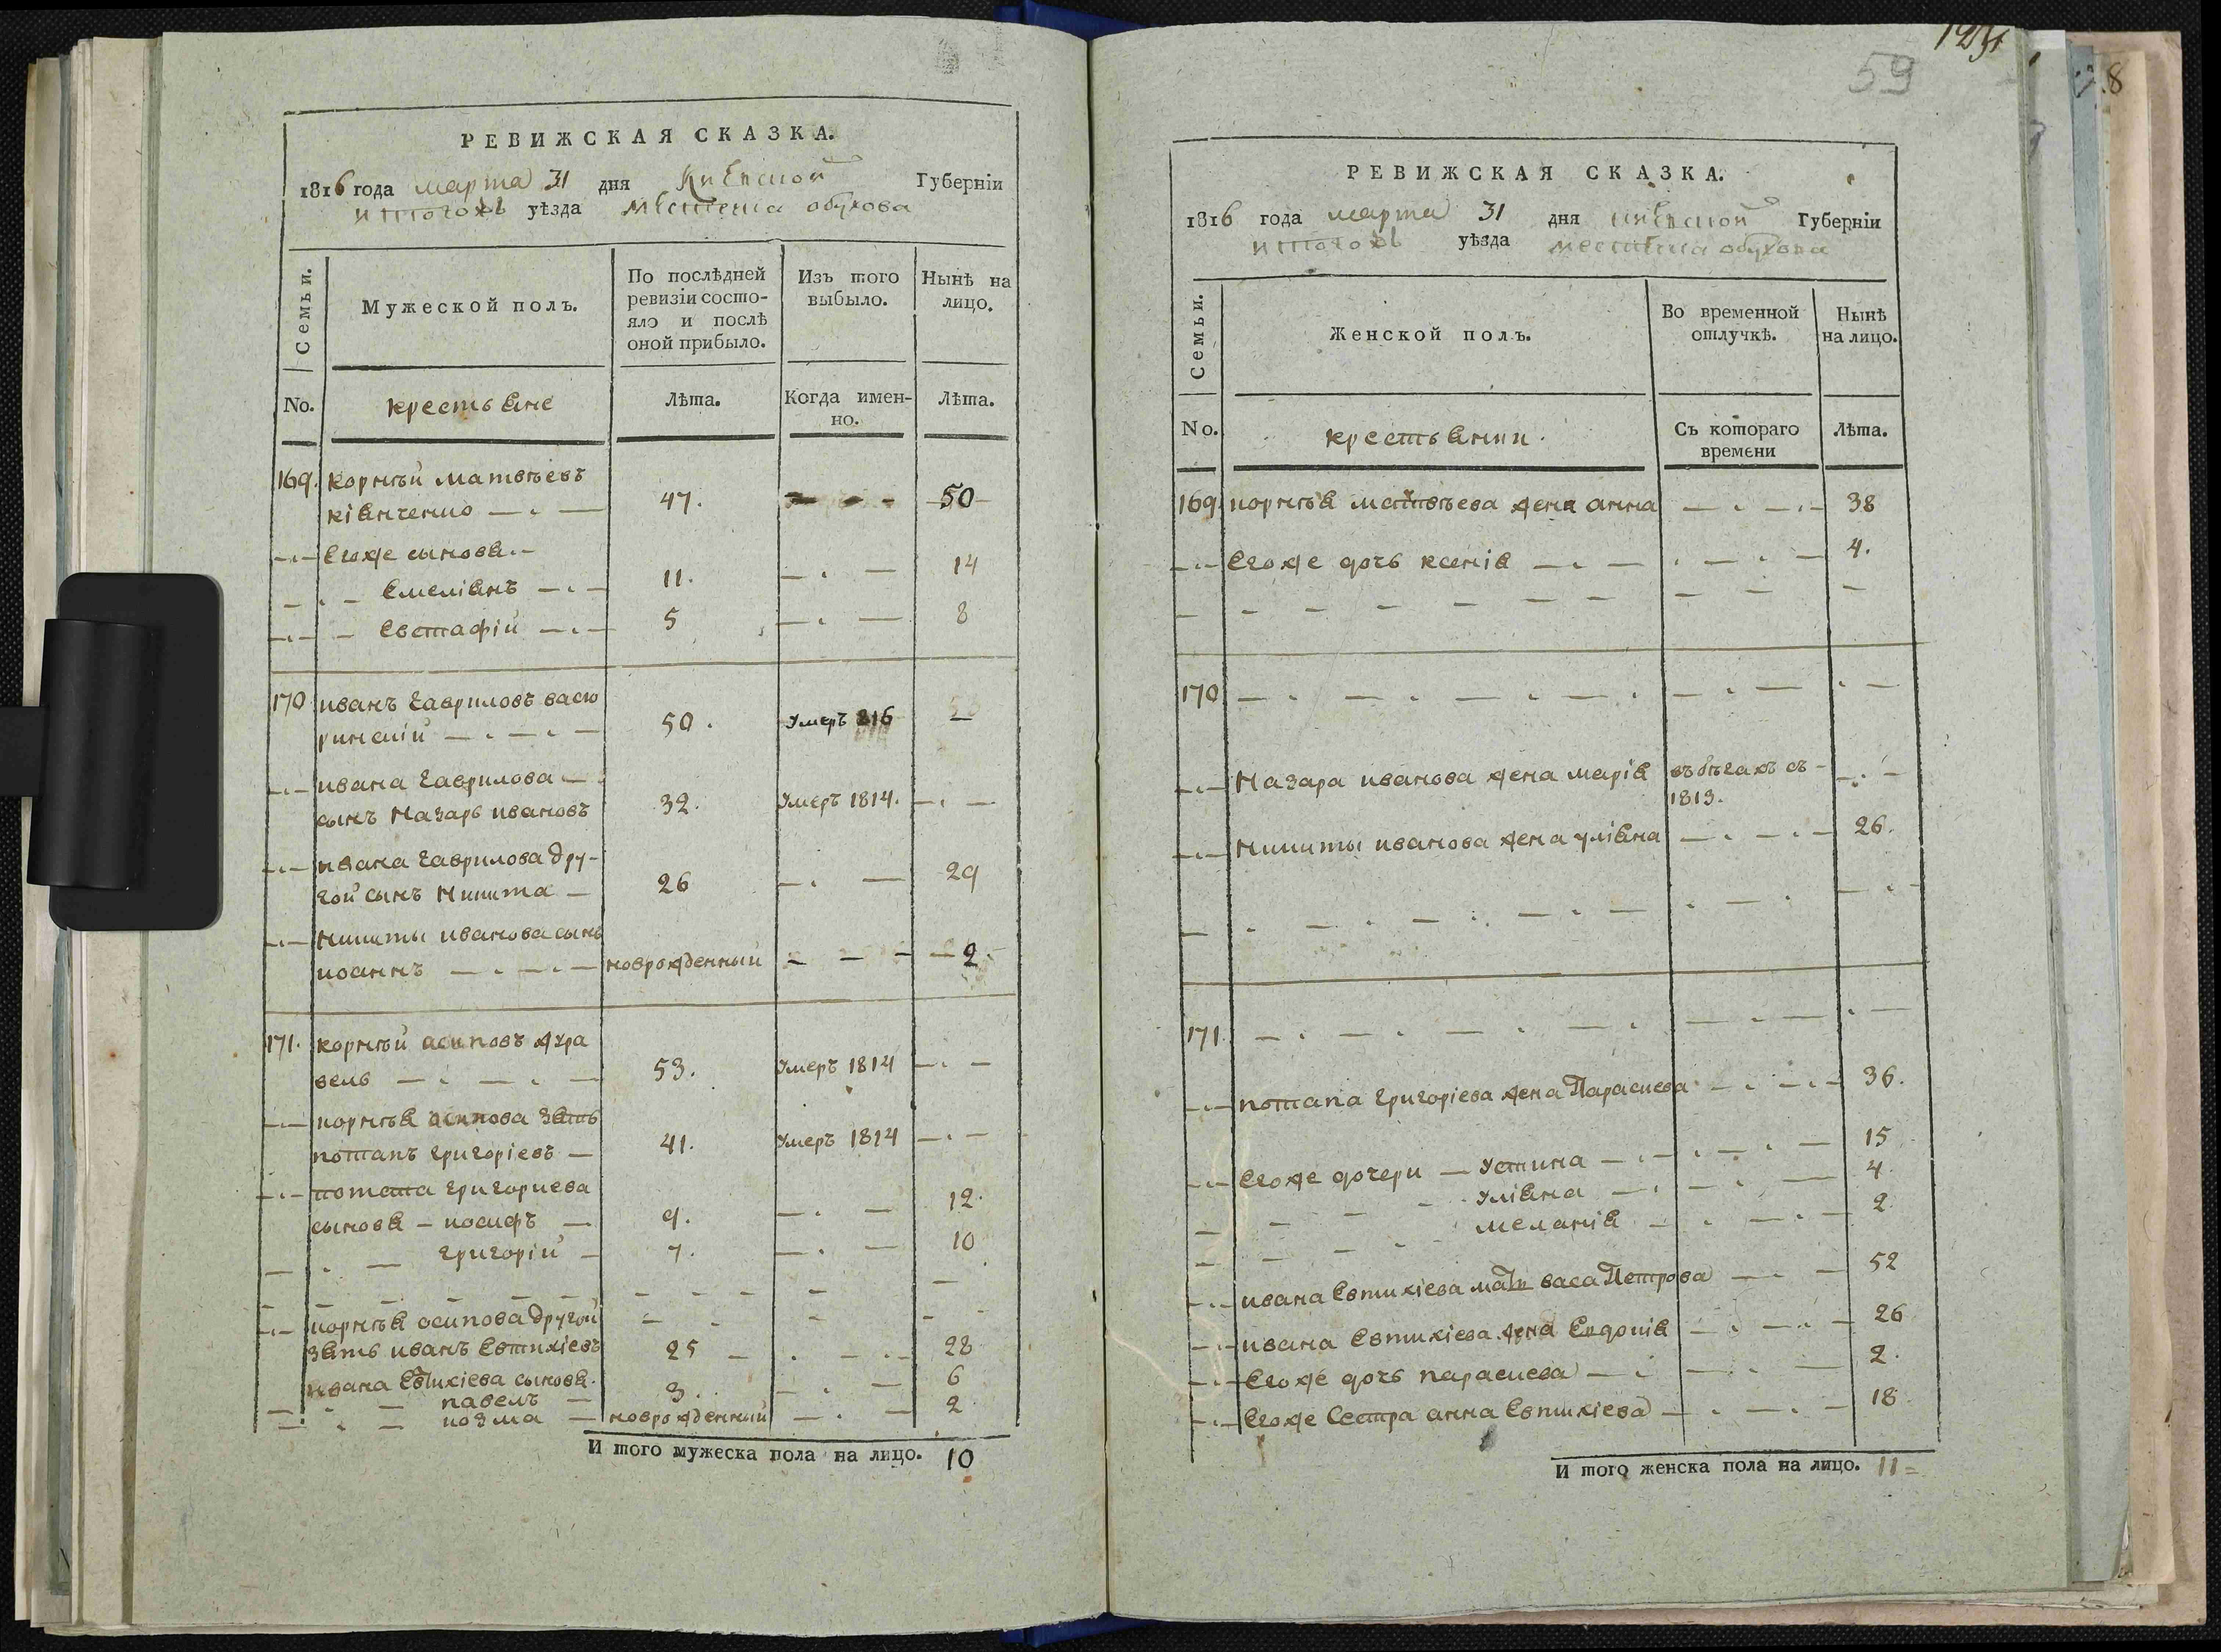 РЕВИЖСКАЯ СКАЗКА.
1816 года марта 31 дня Киевской Губерніи
и того жъ уѣзда местечка обухова
Семьи.
Мужеской полъ.
По послѣдней ревизіи состо-
яло и послѣ оной прибыло.
Изъ того выбыло.
Нынѣ на лицо.
No.
крестьяне
Лѣта.
Когда имен-
но.
Лѣта.
169. корнѣй матвѣевъ
кіянченко 47. 50
Егоже сыновя
Емеліянъ 11. 14
Евстафій 5 8
170 иванъ гавриловъ васю
ринскій 50. Умеръ 816
ивана гаврилова
сынъ Назаръ ивановъ 32. Умеръ 1814.
ивана гаврилова дру-
гой сынъ Никита 26 29
Никиты иванова сынъ
иоаннъ новрожденный 2.
171. корнѣй осиповъ жура
вель 53. Умеръ 1814
корнѣя осипова зять
потапъ григоріевъ 41. Умеръ 1814
потапа григориева
сыновя – иосифъ 9. 12.
григорій 7. 10
корнѣя осипова другой
зять иванъ Евтихіевъ 25 28
ивана Евтихіева сыновя.
павелъ 3. 6
козма новрожденный 2
И того мужеска пола на лицо. 10
59
РЕВИЖСКАЯ СКАЗКА.
1816 года марта 31 дня киевской Губерніи
и того жъ уѣзда местечка обухова
Семьи.
Женской полъ.
Во временной отлучкѣ.
Нынѣ на лицо.
No.
крестьянки.
Съ котораго времени
Лѣта.
169. корнѣя матвѣева жена анна 38
Егоже дочь ксенія 4.
170
Назара иванова жена марія въ бѣгахъ съ
1813.
Никиты иванова жена уліяна 26.
171
потапа григоріева жена Параскева 36.
Егоже дочери – Устина 15
Уліяна 4.
меланія 2
ивана Евтихіева мать васа Петрова 52
ивана Евтихіева жена Евдокія 26
Егоже дочь параскева 2.
Егоже Сестра анна Евтихіева 18
И того женска пола на лицо. 11
8